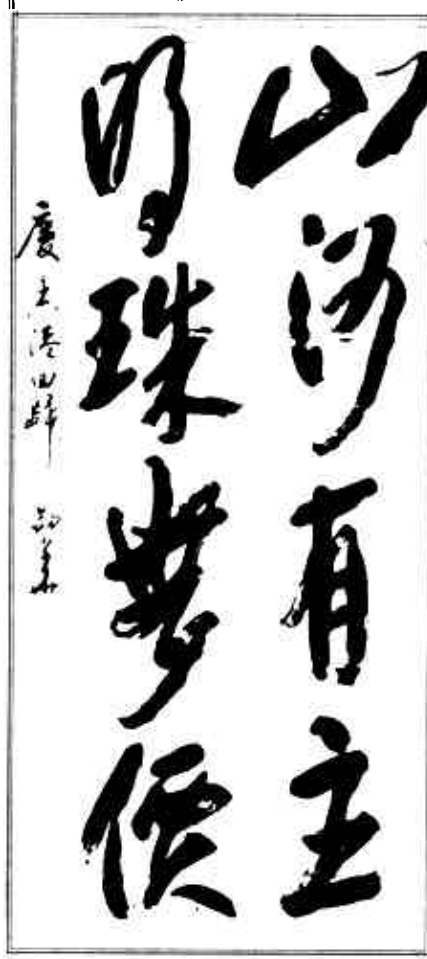 山河有主
明珠無價
慶香港回歸